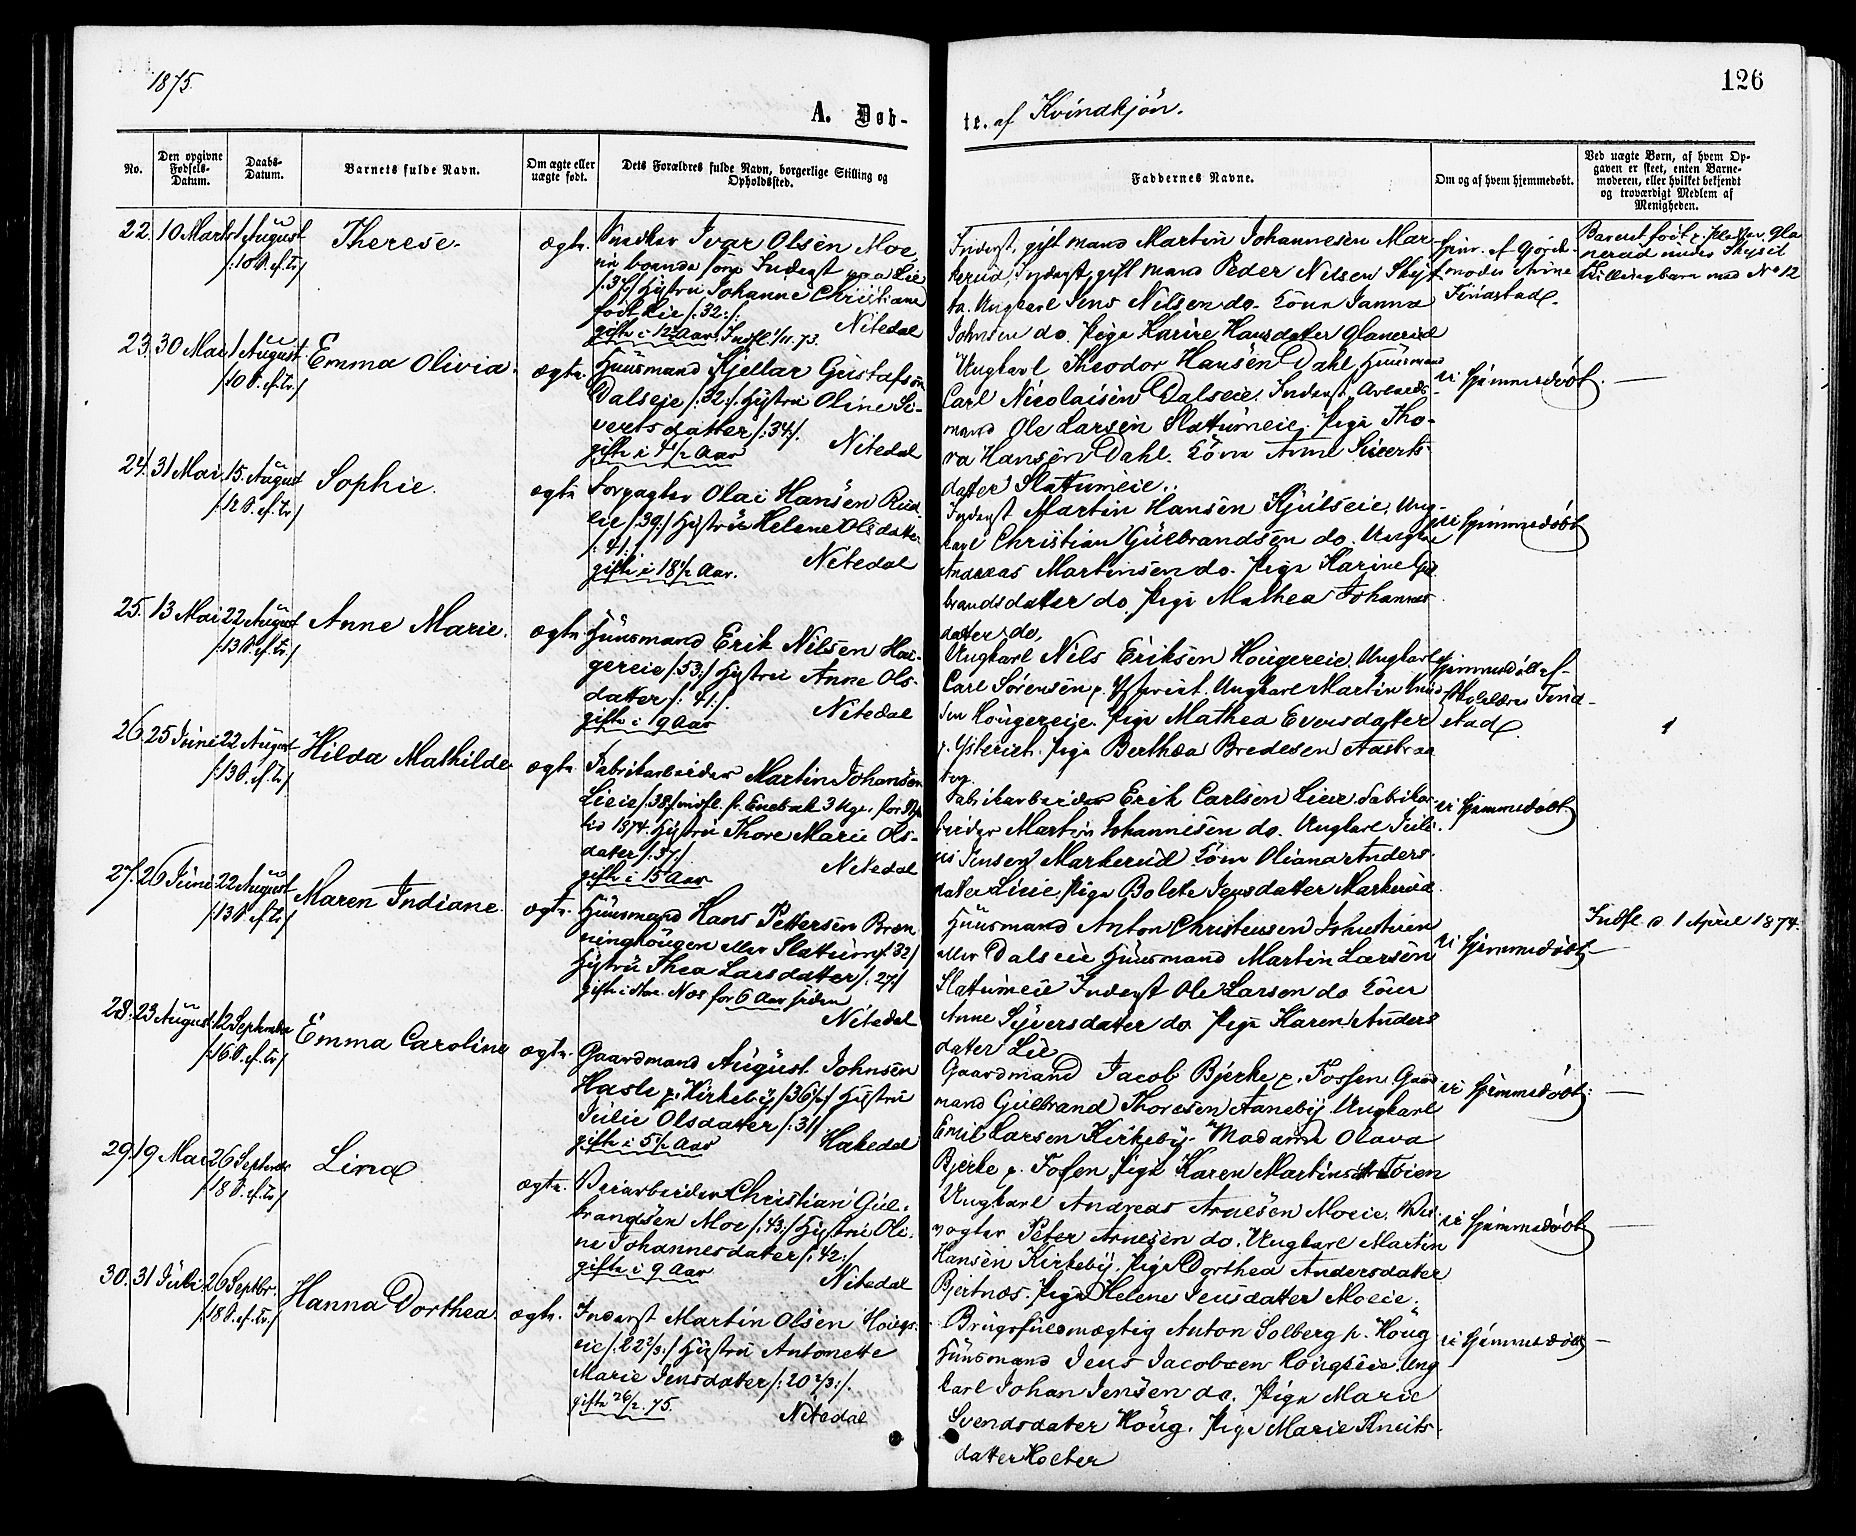 1875.
126
A. Døb-
te. af Kvindkjön.
No.
Den opgivne Fødsels-Datum.
Daabs-Datum.
Barnets fulde Navn.
Om ægte eller uægte født.
Dets Forældres fulde Navn, borgerlige Stilling og Opholdssted.
Faddernes Navne.
Om og af hvem hjemmedøbt.
Ved uægte Børn, af hvem Opgaven er skeet, enten Barnemoderen, eller hvilket bekjendt og troværdigt Medlem af Menigheden.
22. 10 Marts 1 August
/:10 S. ef. Tr/
Therese.
ægte.
Snedker Ivar Olsen Moe
boende som Inderst paa Lie
/:37/ Hustru Johanne Christiane
født Lie /:32:/
gifte i 12 Aar. Indfl. 1/11. 73. Nitedal
Inderst, gift mand Martin Johannesen Mar-
kerud, Inderst, gift mand Peder Nilsen Skyt-
ta. Ungkarl Jens Nilsen do. Kone Janna
Johnsen do. Pige Karine Hansdatter Glanerud
Hjm. af Gjord-
moder Anne
Finstad.
Barnet født p. Pladsen Gla
nerud under Skyset
Tvillingbarn med No 12
23. 30 Mai 1 August
/:10 S. ef. Tr./
Emma Olivia.
ægte.
Huusmand Kjellar Gustafsen
Dalseie /:32:/ Hustru Oline Si-
vertsdatter /:34/.
gifte i 4 1/2 Aar Nitedal
Ungkarl Theodor Hansen Dahl, Huusmand
Carl Nicolaisen Dalseie. Inderst, Arbeids-
mand Ole Larsen Slattumeie. Pige Tho-
ra Hansen Dahl. Kone Anne Siverts-
datter Slattumeie.
ei hjemmedøbt. —
24. 31 Mai 15. August
/:12 S. ef. Tr/
Sophie.
ægte
Forpagter Olai Hansen Rud
eie /:39/ Hustru Helene Olsdatter
/:41:/
gifte i 18 1/2 Aar. Nitedal
Inderst Martin Hansen Kjulseie, Ung-
karl Christian Gulbrandsen do. Ungkar
Andreas Martinsen do. Pige Karine Gul
brandsdatter do. Pige Mathea Johannes
datter do.
ei hjemmedøbt
25. 13 Mai 22 August
/:13 S. ef. Tr/
Anne Marie.
ægte
Huusmand Erik Nilsen Hou-
gereie /:53:/ Hustru Anne Ols-
datter /:41/.
gifte i 9 Aar Nitedal
Ungkarl Nils Eriksen Hougereie, Ungkarl
Carl Sörensen p. Ysteriet. Ungkarl Martin Knud
sen Hougereie. Pige Mathea Eversdatter
p. Ysteriet. Pige Berthea Bredesen Aastraa
hjemmedøbt af
Find-
stad
26. 25 Juni 22 August
/:13 S. ef. Tr/
Hilda Mathilde
ægte
Fabrikarbeider Martin Johansen
Lieeie /:38/ indfl. fr. Enebak 3 Uger for
tid 1874. Hustru Thore Marie Ols-
datter /:37/.
gifte i 15 Aar Nitedal
Fabrikarbeider Erik Carlsen Lieie. Fabrikar-
beider Martin Johannesen do. Ungkarl Juli-
us Jensen Markerud Kone Oliana Anders-
datter Lieie, Pige Bolete Jensdatter Markerud
ei hjemmedøbt
27. 26 Juni 22 August
/:13 S. ef. Tr/
Maren Indiane.
ægte.
Huusmand Hans Pettersen Bræn
ninghougen eller Slattum /:32/
Hustru Thea Larsdatter /:27/
gifte i Nos for 6 Aar siden
Nitedal
Huusmand Anton Christensen
eller Dalseie Huusmand Martin Larsen
Slatumeie Inderst Ole Larsen do Kone
Anne Syversdatter do. Pige Karen Anders
datter Lie
ei hjemmedøbt —
Indfl. d. 1 April 1874.
28. 23 August 12 September
/:16 S. ef. Tr/
Emma Caroline
ægte.
Gaardmand August Johnsen
Hasle p. Kirkeby /36 1/2/ Hustru
Julie Olsdatter /:31/
gifte i 5 1/2 Aar Hakedal
Gaardmand Jacob Bjerke p. Fossen, Gaard
mand Gulbrand Thoresen Aaneby Ungkarl
Emil Larsen Kirkeby. Madame Olava
Bjerke p. Fossen Pige Karen Martinsdtr Toien
ei hjemmedøbt. —
29. 19 Mai 26 Septembr
/:18 S. ef. Tr/
Lina
ægte.
Veiarbeider Christian Gul-
brandsen Moe /:43:/ Hustru Oli-
ne Johannesdatter /:42:/
gifte i 9 Aar Nitedal
Ungkarl Andreas Arnesen Moeie. Vei-
vogter Peter Arnesen do. Ungkarl Martin
Hansen Kirkeby. Pige Dorthea Andersdatter
Bjertnæs. Pige Helene Jensdatter Moeie.
ei hjemmedøbt —
30. 31 Juli 26 Septbr.
/:18 S. ef. Tr./
Hanna Dorthea.
ægte.
Inderst Martin Olsen Hougs-
eie /:22 2/3:/ Hustru Antonette
Marie Jensdatter /:20 2/3:/.
gifte 26/2. 75.
Nitedal
Brugsfuldmægtig Anton Solberg p. Houg
Huusmand Jens Jacobsen Hougseie. Ung
karl Johan Jensen do. Pige Marie
Svendsdatter Houg. Pige Marie Knuts-
datter Holter
ei hjemmedøbt —